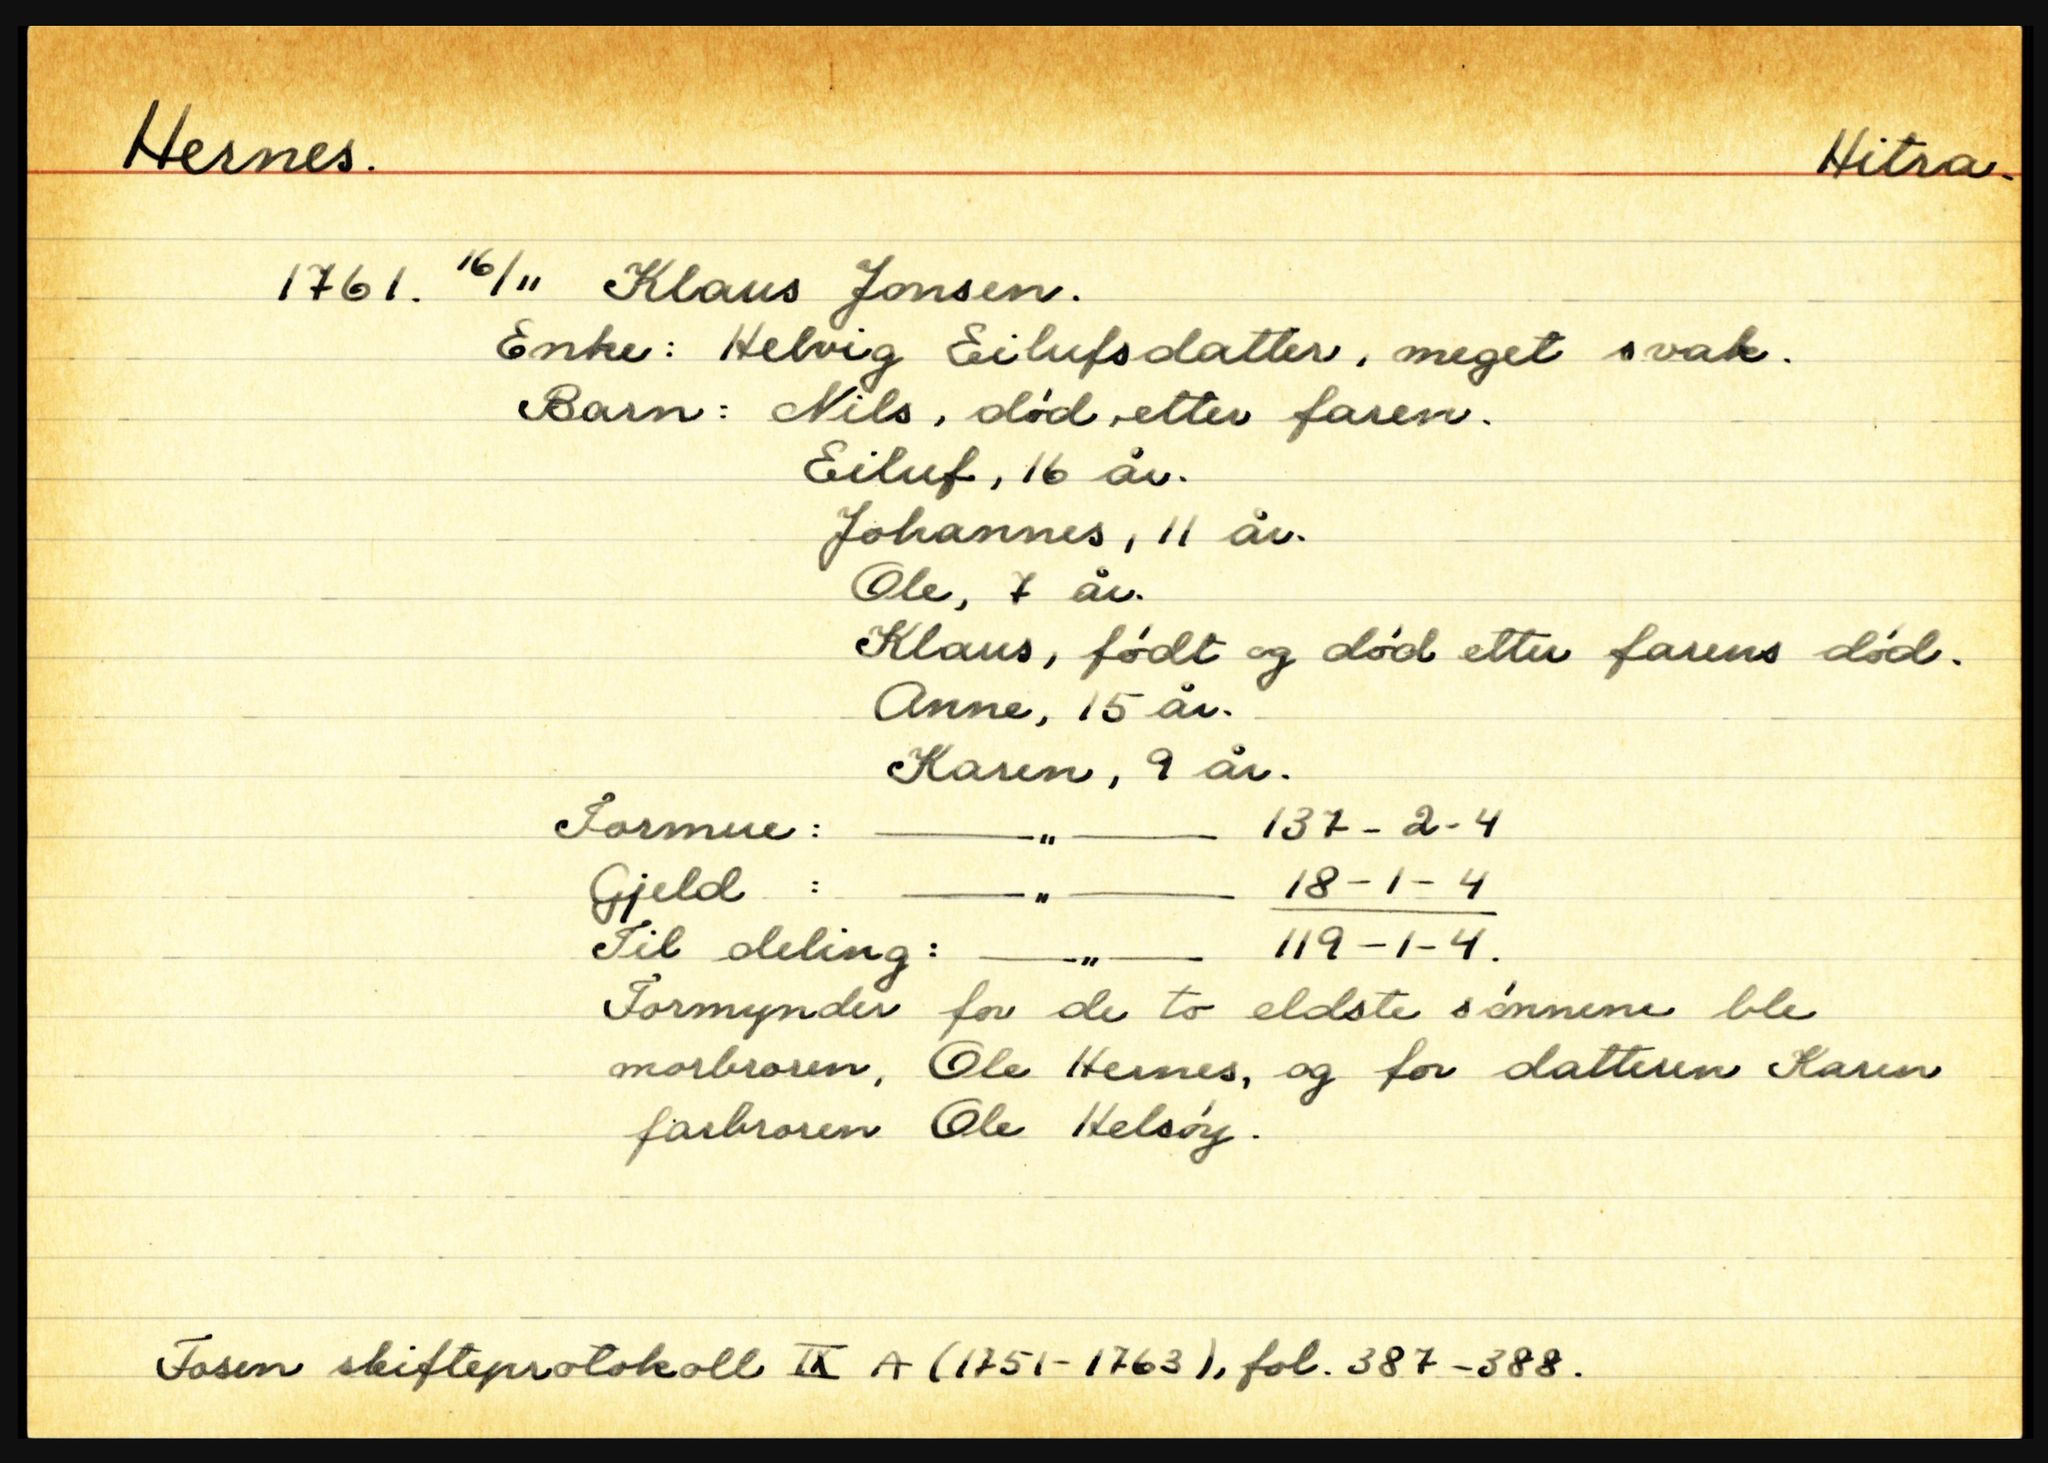 Hernes. Hitra.
1761. 16/11 Klaus Jonsen.
Enke: Helvig Eilufsdatter, meget svak.
Barn: Nils, død etter faren.
Eiluf, 16 år.
Johannes, 11 år.
Ole, 7 år.
Klaus, født og død etter farens død.
Anne, 15 år.
Karen, 9 år.
Formue: —„— 137-2-4
Gjeld : —„— 18-1-4
Til deling: —„— 119-1-4.
Formynder for de to eldste sønnene ble
morbroren, Ole Hernes, og for datteren Karen
farbroren Ole Helsøy.
Fosen skifteprotokoll IX A (1751-1763), fol. 387-388.